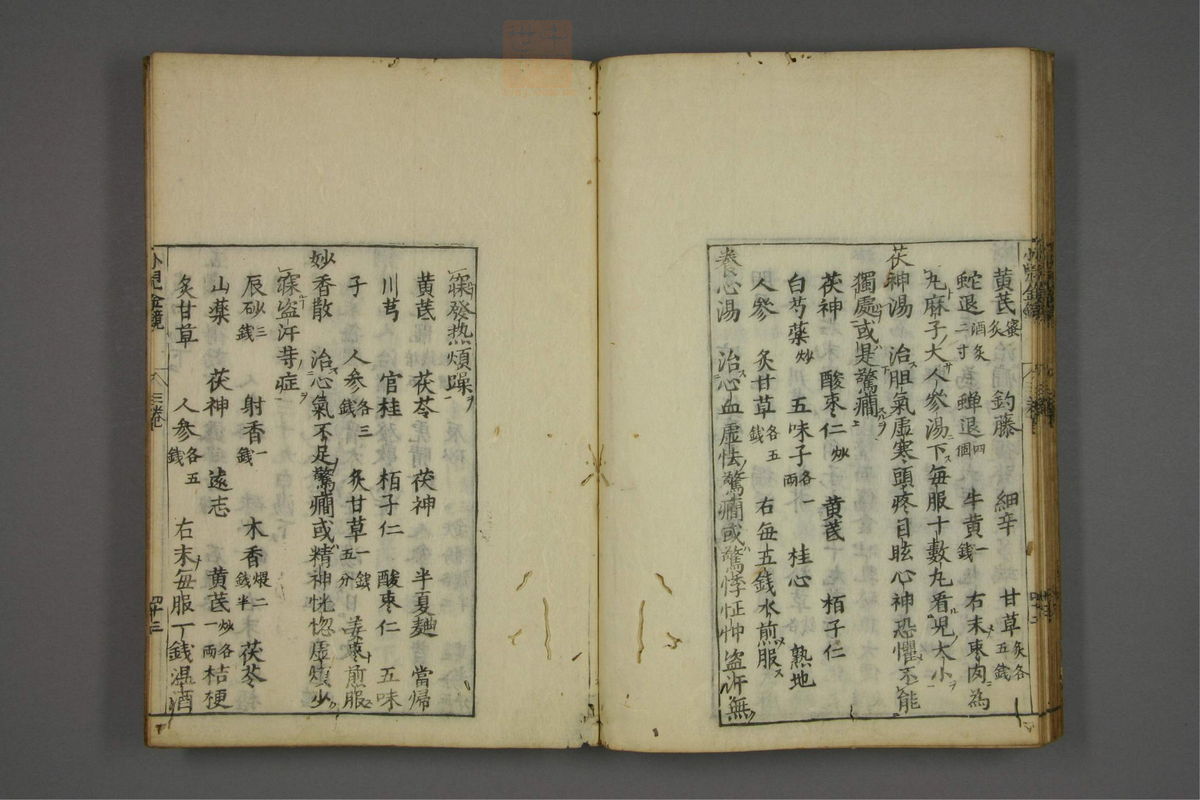 黄芪蜜炙　釣藤　細辛　甘草炙各五錢
蛇退酒炙二寸　蟬退四個　牛黄一錢　右末棗肉為
丸麻子大人參湯下毎服十數丸看児大小
茯神湯　治胆氣虚寒頭疼目眩心神恐懼不能
獨處或是驚癇
茯神　酸棗仁炒　黄芪　栢子仁
白芍藥炒　五味子各一両　桂心　熟地
人參　炙甘草各五錢　右毎五錢水煎服
養心湯　治心血虚怯驚癇或驚悸怔忡盗汗無
寐發热煩躁
黄芪　茯苓　茯神　半夏麯　當帰
川芎　官桂　栢子仁　酸棗仁　五味
子　人參各三錢　炙甘草一錢五分　姜棗煎服
妙香散　治心氣不足驚癇或精神恍惚虚煩少
寐盗汗等症
辰砂三錢　射香一錢　木香煨二錢半　茯苓
山藥　茯神　遠志　黄芪炒各一両　桔梗
炙甘草　人參各五錢　右末毎服一錢温酒
小児金鏡　三卷　四十三